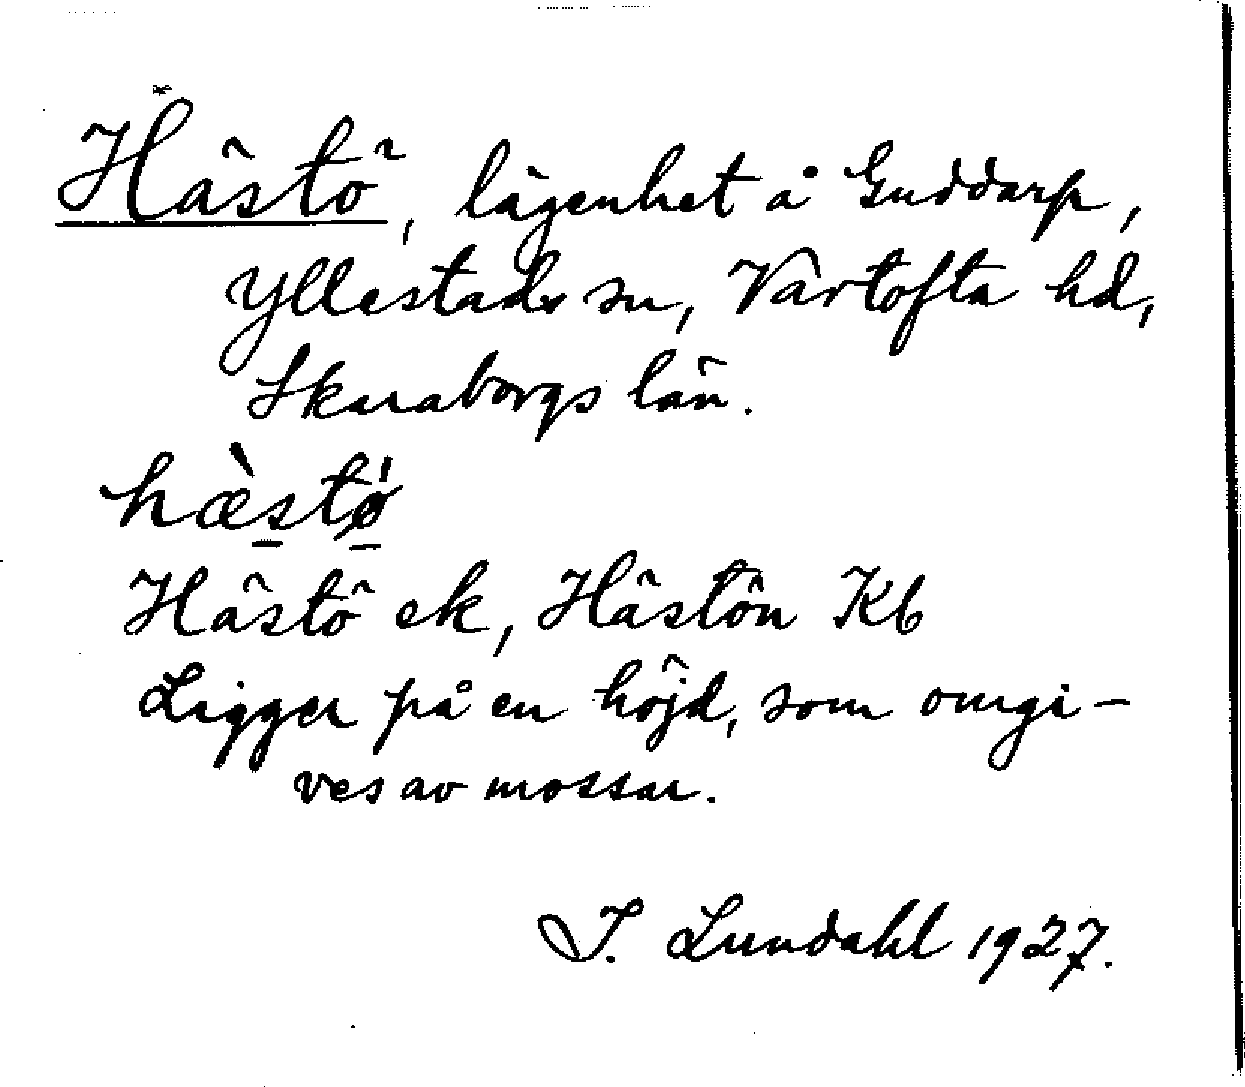 Hästö, lägenhet å Guddarp,
Yllestads sn, Vartofta hd,
Skaraborgs län.
hæ̀stǿ
Hästö ek, Hästön Kb
Ligger på en höjd, som omgi-
ves av mossar.
I. Lundahl 1927.